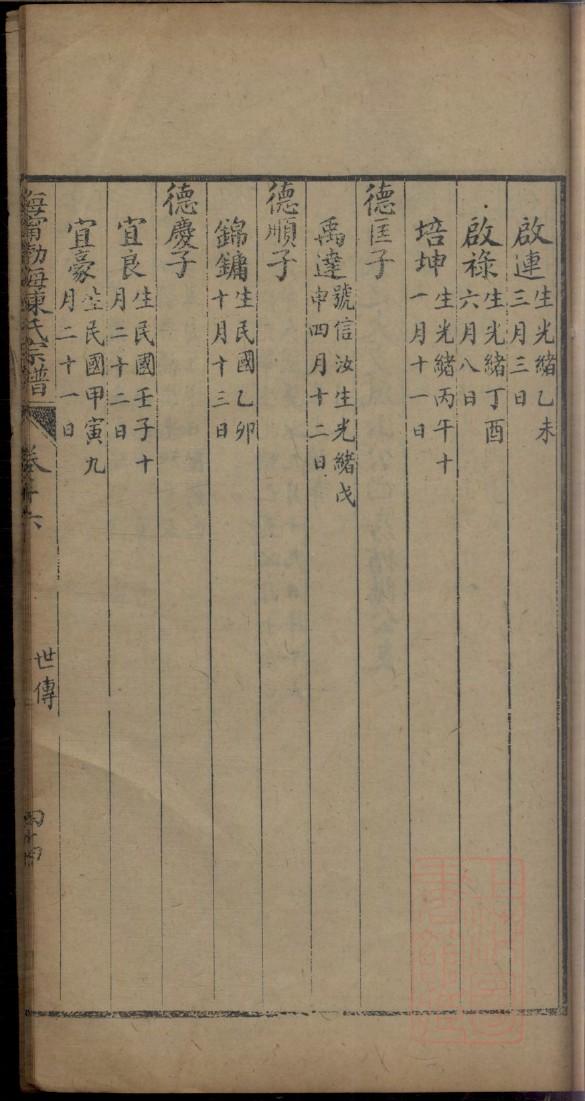 啟連生光緒乙未三月三日
啟祿生光緒丁酉六月八日
培坤生光緒丙午十一月十一日
德匡子
禹達號信汝生光緒戊申四月十二日
德順子
錦鏞生民國乙卯十月十三日
德慶子
宜良生民國壬子十月二十二日
宜豪生民國甲寅九月二十一日
海甯渤海陳氏宗譜 卷十六 世傳